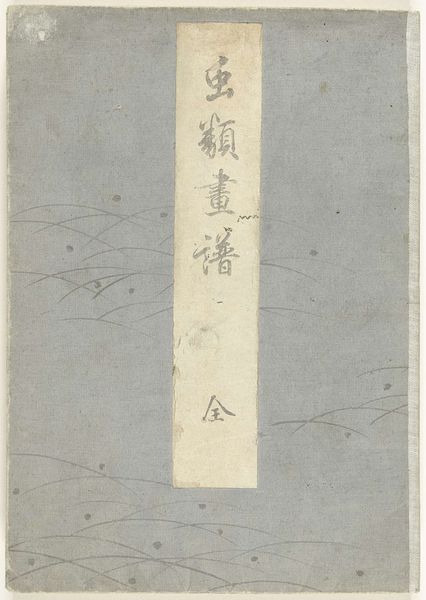 虫類畫譜 全